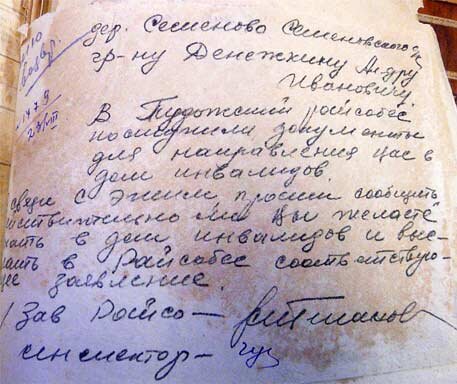 дер. Семеново Семеновского с/с
гр-ну Денежкину Андрею
Ивановичу.
1479
28/VIII
В Пудожский райсобес
поступили документы
для направления Вас в
дом инвалидов.
связи с этим просим сообщить
действительно ли Вы желаете
в дом инвалидов и выс-
лать в Райсобес соответствую-
щее заявление.
Зав Райсо —
инспектор —